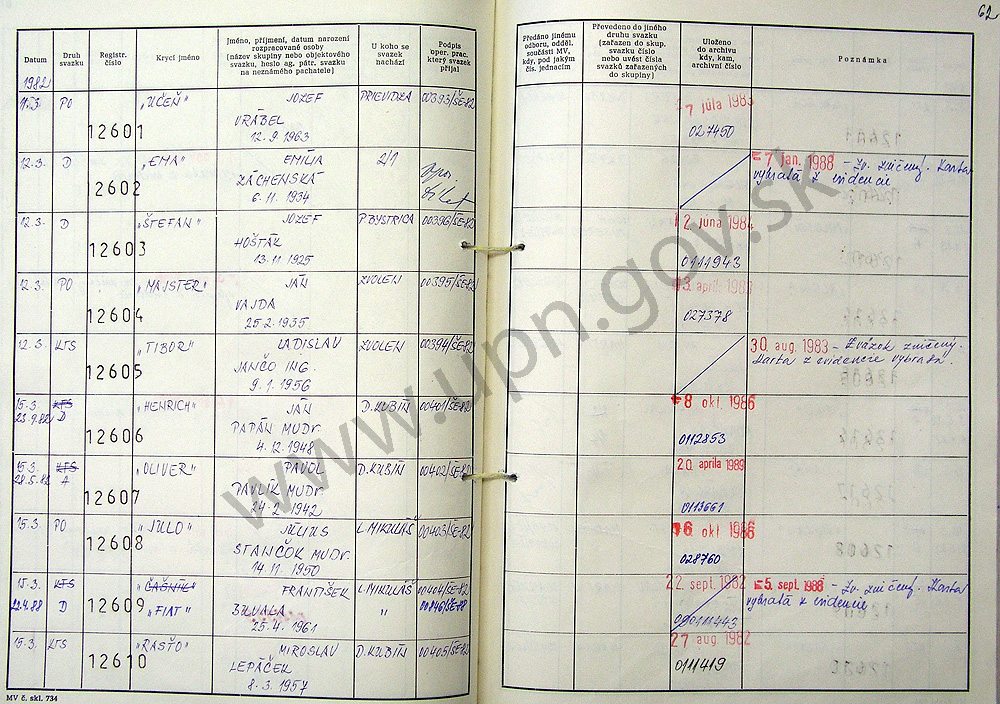 62
Datum
Druh
svazku
Registr.
číslo
Krycí jméno
Jméno, příjmení, datum narození
rozpracované osoby
(název skupiny nebo objektového
svazku, heslo ag. pátr. svazku
na neznámého pachatele)
U koho se
svazek
nachází
Podpis
oper. prac.
který svazek
přijal
Předáno jinému
odboru, odděl.
součásti MV,
kdy, pod jakým
čís. jednacím
Převedeno do jiného
druhu svazku
(zařazen do skup.
svazku číslo
nebo uvést čísla
svazků zařazených
do skupiny)
Uloženo
do archivu
kdy, kam,
archivní číslo
Poznámka
1982
11.3. PO 12601 „UČEŇ" JOZEF PRIEVIDZA 00393/ŠE-82
VRÁBEL
12.9.1963
7 júla 1983
027450
12.3. D 2602 „EMA" EMÍLIA 2/1
ZÁCHENSKÁ
6.11.1934
7 jan. 1988 - Zv. zničený. Karta
vybratá z evidencie
12.3. D 12603 „ŠTEFAN" JOZEF P.BYSTRICA 00396/ŠE-82
HOŠTÁK
13.11.1925
2. júna 1984
0111943
12.3. PO 12604 „MAJSTER" JÁN ZVOLEN 00395/ŠE-82
VAJDA
25.2.1935
3. apríla 1983
027378
12.3. KTS 12605 „TIBOR" LADISLAV ZVOLEN 00394/ŠE-82
JANČO ING.
9.1.1956
30 aug. 1983 - Zväzok zničený.
Karta z evidencie vybratá.
15.3. KTS 12606 „HENRICH" JÁN D.KUBÍN 00401/ŠE-82
23.9.82 D
PAPÁN MUDr.
4.12.1948
8 okt 1986
0112853
15.3. KTS 12607 „OLIVER" PAVOL D.KUBÍN 00402/ŠE-82
A
PAVLÍK MUDr.
24.2.1942
20. apríla 1989
0113661
15.3. PO 12608 „JULO" JÚLIUS L.MIKULÁŠ 00403/ŠE-82
STANČOK MUDr.
14.11.1950
6 okt 1986
028760
15.3. KTS 12609 „ČAŠNÍK" FRANTIŠEK L.MIKULÁŠ 00404/ŠE-82
22.4.88 D „FIAT" " 00846/ŠE-88
25.4.1961
22. sept. 1982
5. sept. 1988 - Zv. zničený. Karta
vybratá z evidencie
15.3. KTS 12610 „RASŤO" MIROSLAV D.KUBÍN 00405/ŠE-82
LEPÁČEK
8.3.1957
27 aug. 1982
0111419
MV č. skl. 734
www.upn.gov.sk